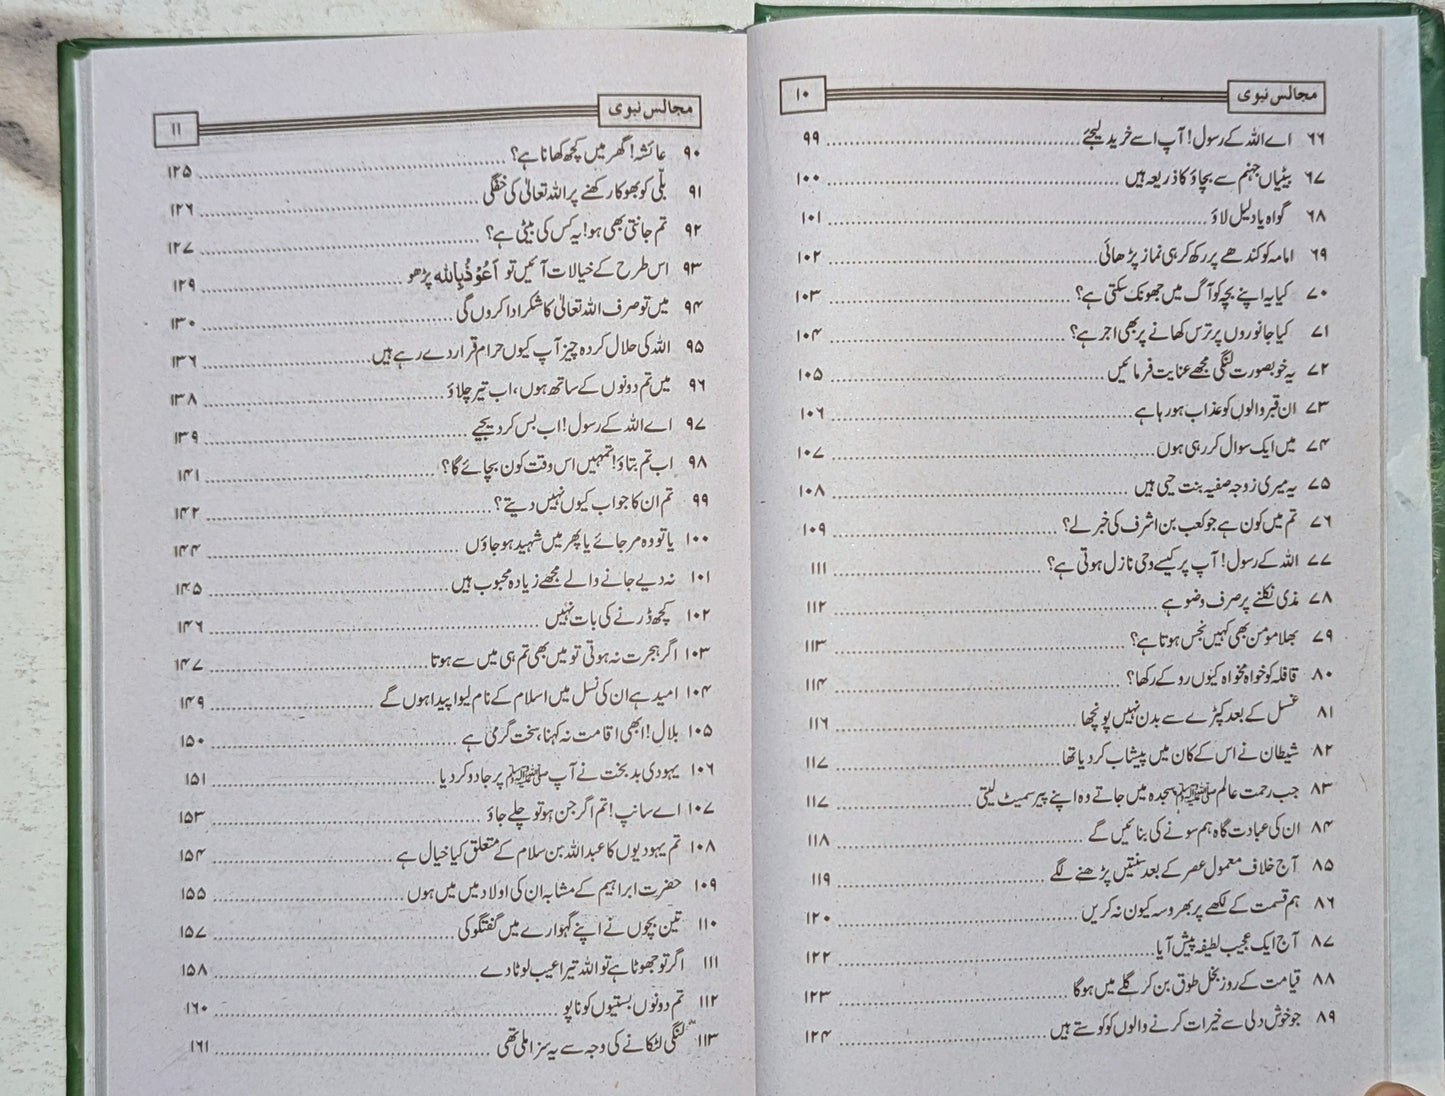 مجالس نبوی ۱۰
۶۶ اے اللہ کے رسول! آپ اسے خرید لیجئے ۹۹
۶۷ بیٹیاں جہنم سے بچاؤ کا ذریعہ ہیں ۱۰۰
۶۸ گواہ یا دلیل لاؤ ۱۰۱
۶۹ امامہ کو کندھے پر رکھ کر ہی نماز پڑھائی ۱۰۲
۷۰ کیا یہ اپنے بچہ کو آگ میں جھونک سکتی ہے؟ ۱۰۳
۷۱ کیا جانوروں پر ترس کھانے پر بھی اجر ہے؟ ۱۰۴
۷۲ یہ خوبصورت لنگی مجھے عنایت فرمائیں ۱۰۵
۷۳ ان قبر والوں کو عذاب ہو رہا ہے ۱۰۶
۷۴ میں ایک سوال کر رہی ہوں ۱۰۷
۷۵ یہ میری زوجہ صفیہ بنت حیی ہیں ۱۰۸
۷۶ تم میں کون ہے جو کعب بن اشرف کی خبر لے؟ ۱۰۹
۷۷ اللہ کے رسول! آپ پر کیسے وحی نازل ہوتی ہے؟ ۱۱۱
۷۸ مذی نکلنے پر صرف وضو ہے ۱۱۲
۷۹ بھلا مومن بھی کہیں نجس ہوتا ہے؟ ۱۱۳
۸۰ قافلہ کو خواہ مخواہ کیوں روکے رکھا؟ ۱۱۴
۸۱ غسل کے بعد کپڑے سے بدن نہیں پونچھا ۱۱۶
۸۲ شیطان نے اس کے کان میں پیشاب کر دیا تھا ۱۱۷
۸۳ جب رحمت عالم ﷺ سجدہ میں جاتے وہ اپنے پیر سمیٹ لیتی ۱۱۷
۸۴ ان کی عبادت گاہ ہم سونے کی بنائیں گے ۱۱۸
۸۵ آج خلاف معمول عصر کے بعد سنتیں پڑھنے لگے ۱۱۹
۸۶ ہم قسمت کے لکھے پر بھروسہ کیون نہ کریں ۱۲۰
۸۷ آج ایک عجیب لطیفہ پیش آیا ۱۲۲
۸۸ قیامت کے روز بخل طوق بن کر گلے میں ہوگا ۱۲۳
۸۹ جو خوش دلی سے خیرات کرنے والوں کو کوستے ہیں ۱۲۴
مجالس نبوی ۱۱
۹۰ عائشہ! گھر میں کچھ کھانا ہے؟ ۱۲۵
۹۱ بلّی کو بھوکا رکھنے پر اللہ تعالیٰ کی خفگی ۱۲۶
۹۲ تم جانتی بھی ہو! یہ کس کی بیٹی ہے؟ ۱۲۷
۹۳ اس طرح کے خیالات آئیں تو اَعُوْذُبِاللہ پڑھو ۱۲۹
۹۴ میں تو صرف اللہ تعالیٰ کا شکر ادا کروں گی ۱۳۰
۹۵ اللہ کی حلال کردہ چیز آپ کیوں حرام قرار دے رہے ہیں ۱۳۶
۹۶ میں تم دونوں کے ساتھ ہوں، اب تیر چلاؤ ۱۳۸
۹۷ اے اللہ کے رسول! اب بس کر دیجیے ۱۳۹
۹۸ اب تم بتاؤ! تمہیں اس وقت کون بچائے گا؟ ۱۴۱
۹۹ تم ان کا جواب کیوں نہیں دیتے؟ ۱۴۲
۱۰۰ یا تو وہ مر جائے یا پھر میں شہید ہو جاؤں ۱۴۴
۱۰۱ نہ دیے جانے والے مجھے زیادہ محبوب ہیں ۱۴۵
۱۰۲ کچھ ڈرنے کی بات نہیں ۱۴۶
۱۰۳ اگر ہجرت نہ ہوتی تو میں بھی تم ہی میں سے ہوتا ۱۴۷
۱۰۴ امید ہے ان کی نسل میں اسلام کے نام لیوا پیدا ہوں گے ۱۴۹
۱۰۵ بلال! ابھی اقامت نہ کہنا، سخت گرمی ہے ۱۵۰
۱۰۶ یہودی بدبخت نے آپ ﷺ پر جادو کر دیا ۱۵۱
۱۰۷ اے سانپ! تم اگر جن ہو تو چلے جاؤ ۱۵۳
۱۰۸ تم یہودیوں کا عبداللہ بن سلام کے متعلق کیا خیال ہے ۱۵۴
۱۰۹ حضرت ابراہیم کے مشابہ ان کی اولاد میں میں ہوں ۱۵۵
۱۱۰ تین بچوں نے اپنے گہوارے میں گفتگو کی ۱۵۷
۱۱۱ اگر تو جھوٹا ہے تو اللہ تیرا عیب لوٹا دے ۱۵۸
۱۱۲ تم دونوں بستیوں کو ناپو ۱۶۰
۱۱۳ لنگی لٹکانے کی وجہ سے یہ سزا ملی تھی ۱۶۱